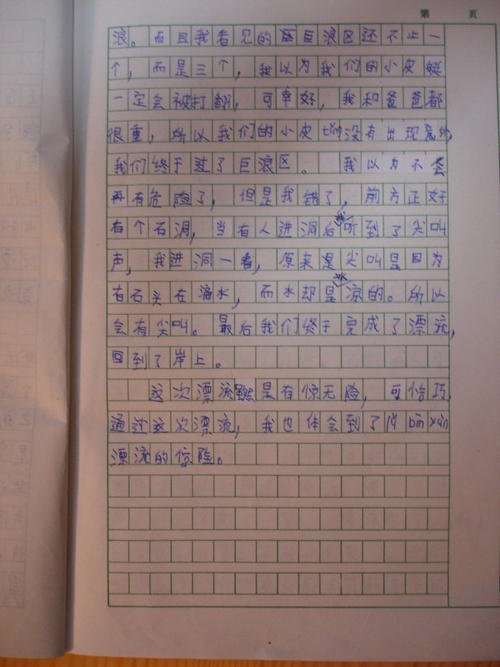 第 页
浪。而且我看见的巨浪区还不止一
个，而是三个，我以为我们的小皮艇
一定会被打翻，可幸好，我和爸爸都
很重，所以我们的小皮ting没有出现意外，
我们终于过了巨浪区。 我以为不会
再有危险了，但是我错了，前方正好
有个石洞，当有人进洞后我听到了尖叫
声，我进洞一看，原来是尖叫是因为
有石头在滴水，而水却是冰凉的。所以
会有尖叫。最后我们终于完成了漂流，
回到了岸上。
这次漂流虽然是有惊无险，可
通过这次漂流，我也体会到了
漂流的惊险。